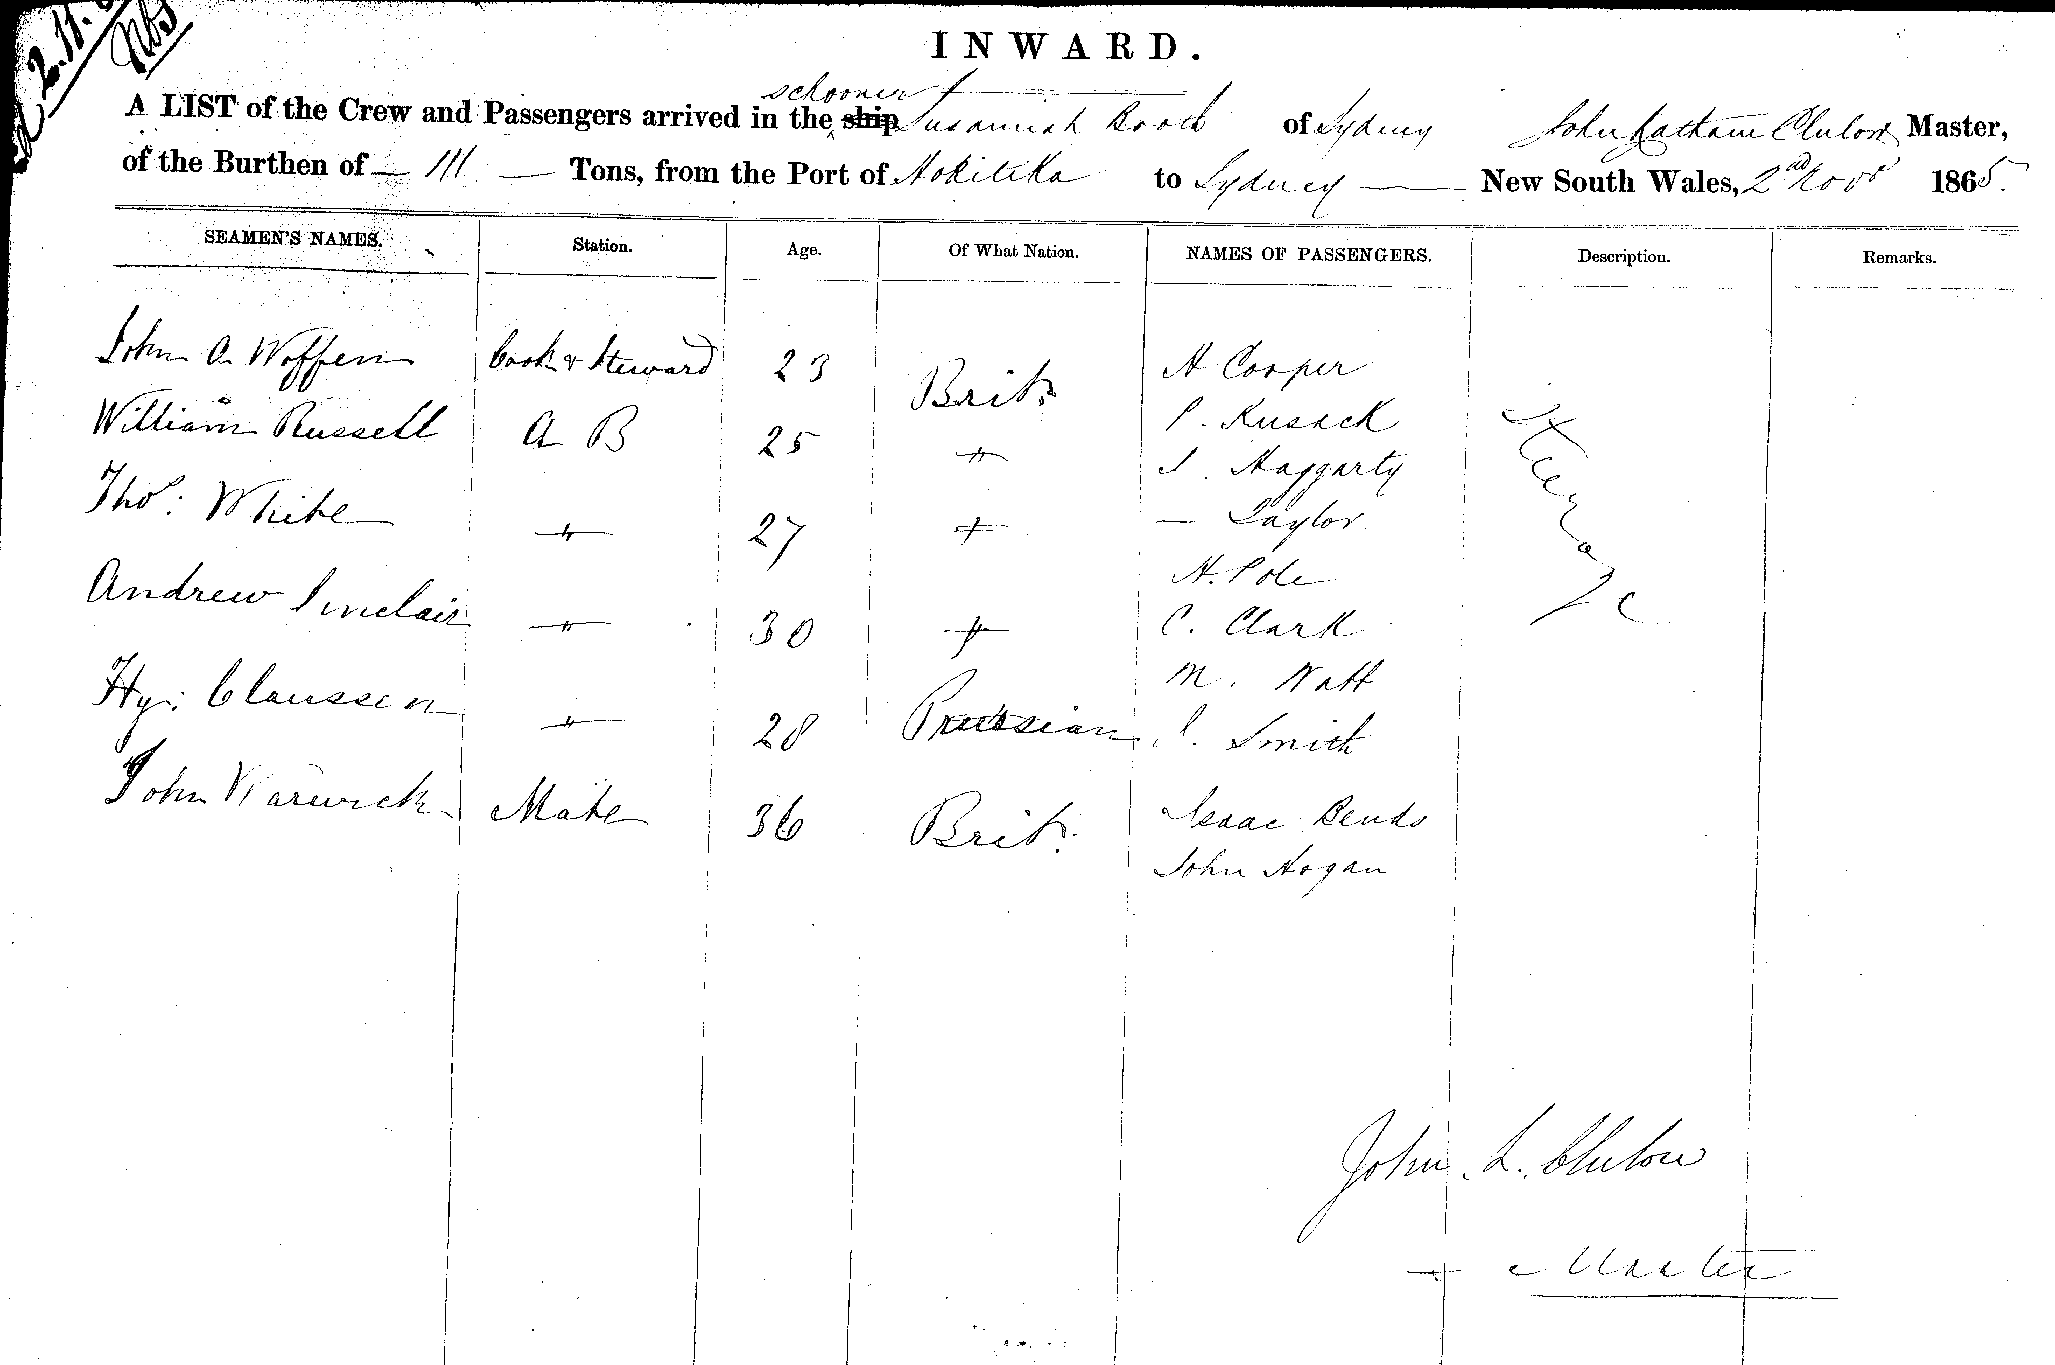 2.11.
INWARD.
schooner
A LIST of the Crew and Passengers arrived in the ship Susannah Booth of Sydney John Latham Clulow Master,
of the Burthen of 111 Tons, from the Port of Hokitika to Sydney New South Wales, 2nd Novr 1865.
SEAMEN'S NAMES. Station. Age. Of What Nation. NAMES OF PASSENGERS. Description. Remarks.
John A Woffen Cook & Steward 23 Brit. H Cooper
William Russell A B 25 " P. Kusack Steerage
Thos: White " 27 " J. Haggarty
— Taylor
Andrew Sinclair " 30 " H. Pole
C. Clark
Hy: Claussen " 28 Prussian M. Watt
J. Smith
John Warwick Mate 36 Brit. Isaac Bends
John Hogan
John. L. Clulow
Master